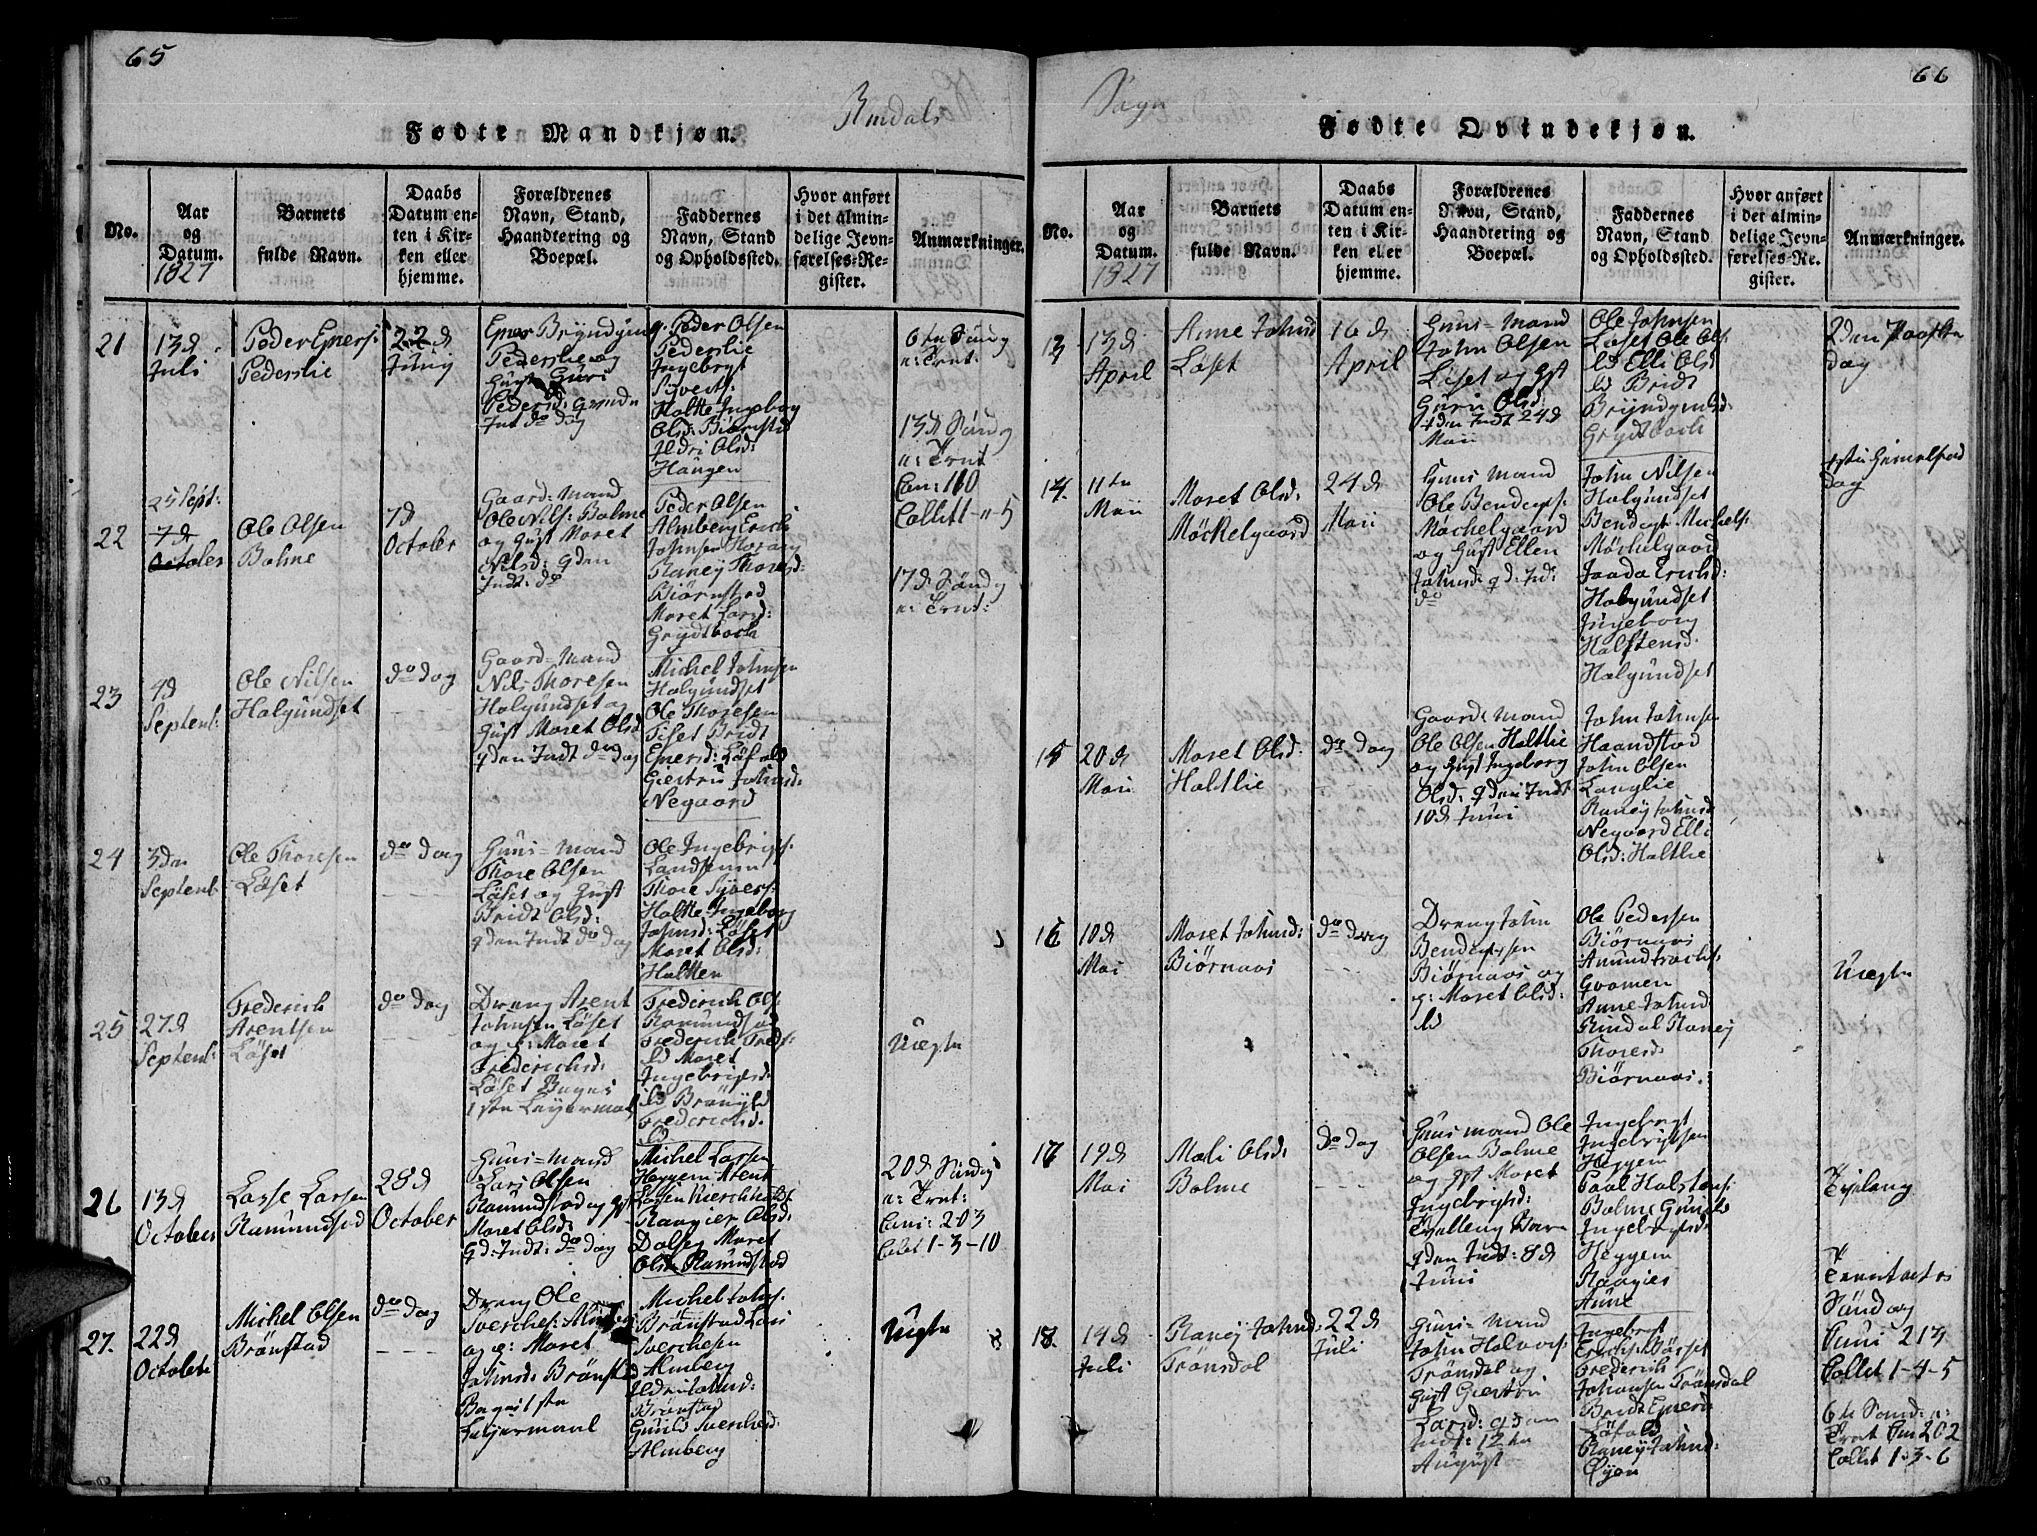 65
Rindals
Fødte Mandkjøn.
No.
Aar og Datum.
1827
Barnets fulde Navn.
Daabs Datum enten i Kirken eller hjemme.
Forældrenes Navn, Stand, Haandtering og Boepæl.
Faddernes Navn, Stand og Opholdssted.
Hvor anført i det almindelige Jevnførelses-Register.
Anmærkninger.
21
13d
Juli
Peder Eners:
Pederslie
22d
Ener Bryndgen
Pederslie og
Hust Guri
Pedersd:
Int do dag
Peder Olsen
Pederslie
Ingebrigt
Sivert:
Holtte Ingeborg
Olsd: Biørnstad
Ildri Olsd:
Haugen
6te Søndg
e: Trnt:
13d Søndg
e: Trnt
Com: 160
Collett 1-"-5
22
25 Sept:
7d
October
Ole Olsen
Bolme
7d
October
Gaard: Mand
Ole Nils: Bolme
og Hust Maret
Nilsd: gden
Indt: do
Peder Olsen
Almberg Erich
Johnsen
Raney Thoresd:
Biørnstad
Maret Larsd:
Grydtbach
17d Søndg
e: Trnt:
23
4d
Septemb:
Ole Nilsen
Halgundset
do dag
Gaard-Mand
Nils Thoresen
Halgundset og
Hust Maret Olsd
gden Indt do dag
Michel Johnsen
Halgundset
Ole Thoresen
Tiset Bridt
Enersd: Løfald
Giertru Johnsd:
Negaard
24
3die
Septemb
Ole Thoresen
Løset
do dag
Huus-Mand
Thore Olsen
Løset og Hust
Bridt Olsd:
gden Indt do dag
Ole Ingebrigs:
Landsem
Thore Syvers:
Holtte Ingeborg
Johnsd: Løset
Maret Olsd:
Haltten
25
27d
Septemb:
Frederich
Arentsen
Løset
do dag
Dreng Arent
Johnsen Løset
og P: Maret
Frederichsd:
Løset Beges
1ste Leyermaal
Frederich Ols:
Romundstad
Frederich Freds:
ibd Maret
Ingebrigtsd:
ibd Brønyld
Frederichsd.
ibd
Uægte
26
13d
October
Lasse Larsen
Romundstad
28d
October
Huus-Mand
Lars Olsen
Romundstad og Hst
Maret Olsd:
gd: Indt: do dag
Michel Larsen
Heggem Arent
Raagier Olsd:
Dalseg Maret
Olsd: Romundstad
20d Søndag
e: Trnt:
Com: 203
Collet 1-3-10
27.
22d
October
Michel Olsen
Brønstad
do dag
Dreng Ole
Sverches: Almberg
og P: Maret
Johnsd: Brønstad
Beges 1ste
Leyermaal
Michel Johns:
Brønstad Lars
Sverchesen
Almberg
Ildri Johnsd:
Brønstad
Gunild Sverchesd:
Almberg
Uægte
66
Sogn
Fødte Qvindekjøn.
No.
Aar og Datum.
1827
Barnets fulde Navn.
Daabs Datum enten i Kirken eller hjemme.
Forældrenes Navn, Stand, Haandtering og Boepæl.
Faddernes Navn, Stand og Opholdssted.
Hvor anført i det almindelige Jevnførelses-Register.
Anmærkninger.
13
13d
April
Anne Johnsd
Løset
16d
April
Huus-Mand
John Olsen
Løset og Hst
Guru Olsd:
gden Indt 24d
Maii
Ole Johnsen
Løset Ole Ols:
ibd Elli Olsd
ibd Bridt
Bryndgenlsd:
Grydtbach
2den Paaske
dag
14.
11te
Maii
Maret Olsd:
Møchelgaard
24d
Maii
Huus Mand
Ole Bendigts:
Møchelgaard
og Hust Ellen
Johnsd: gd: Ind:
do
John Nilsen
Halgundset
Bendigt Michels:
Møchelgaard
Jaada Erichsd:
Halgundset
Ingeborg
Halstensd.
Halgundset
Christi Himelfard
Dag
15
20d
Maii
Maret Olsd:
Holtlie
do dag
Gaard: Mand
Ole Olsen Holtlie
og Hust Ingeborg
Olsd: gden Indt
10d Juni
John Johnsen
Haandstad
John Olsen
Langlie
Raney Johnsd
Negaard Elli
Olsd: Holtlie
16
10d
Mai
Maret Johnsd:
Biørnaas
do dag
Dreng John
Bendigtsen
Biørnaas og
P: Maret Olsd:
ibd
Ole Pedersen
Biørnaas
Amund
Gvamen
Anne Johnsd
Rindal Raney
Thoresd.
Biørnaas.
Uægte
17
19d
Mai
Mali Olsd:
Bolme
do dag
Huusmand Ole
Olsen Bolme
og Hst Maret
Ingebrigtsd:
Tvilleng Barn
gden Indt: 8d
Juni
Ingebrigt
Ingebrigtsen
Heggem
Paal Halstens:
Bolme Gunild
Ingebrigtsd:
Heggem
Raagier
Anne
Tvileng
Trinitatis
Søndag
Comi 213
Collet 1-4-5
18.
14d
Juli
Raney Johnsd:
Trønsdal
22d
Juli
Huus-Mand
John Halvors:
Trønsdal og
Hust Giertru
Larsd: gden
Indt: 12te
August
Ingebrigt
Erichs: Børset
Frederich
Johansen Trønsdal
Bridt Enersd
Løfald
Raney Johnsd:
Øyen
6te Sønd: e:
Trnt Com 202
Collet 1-3-6